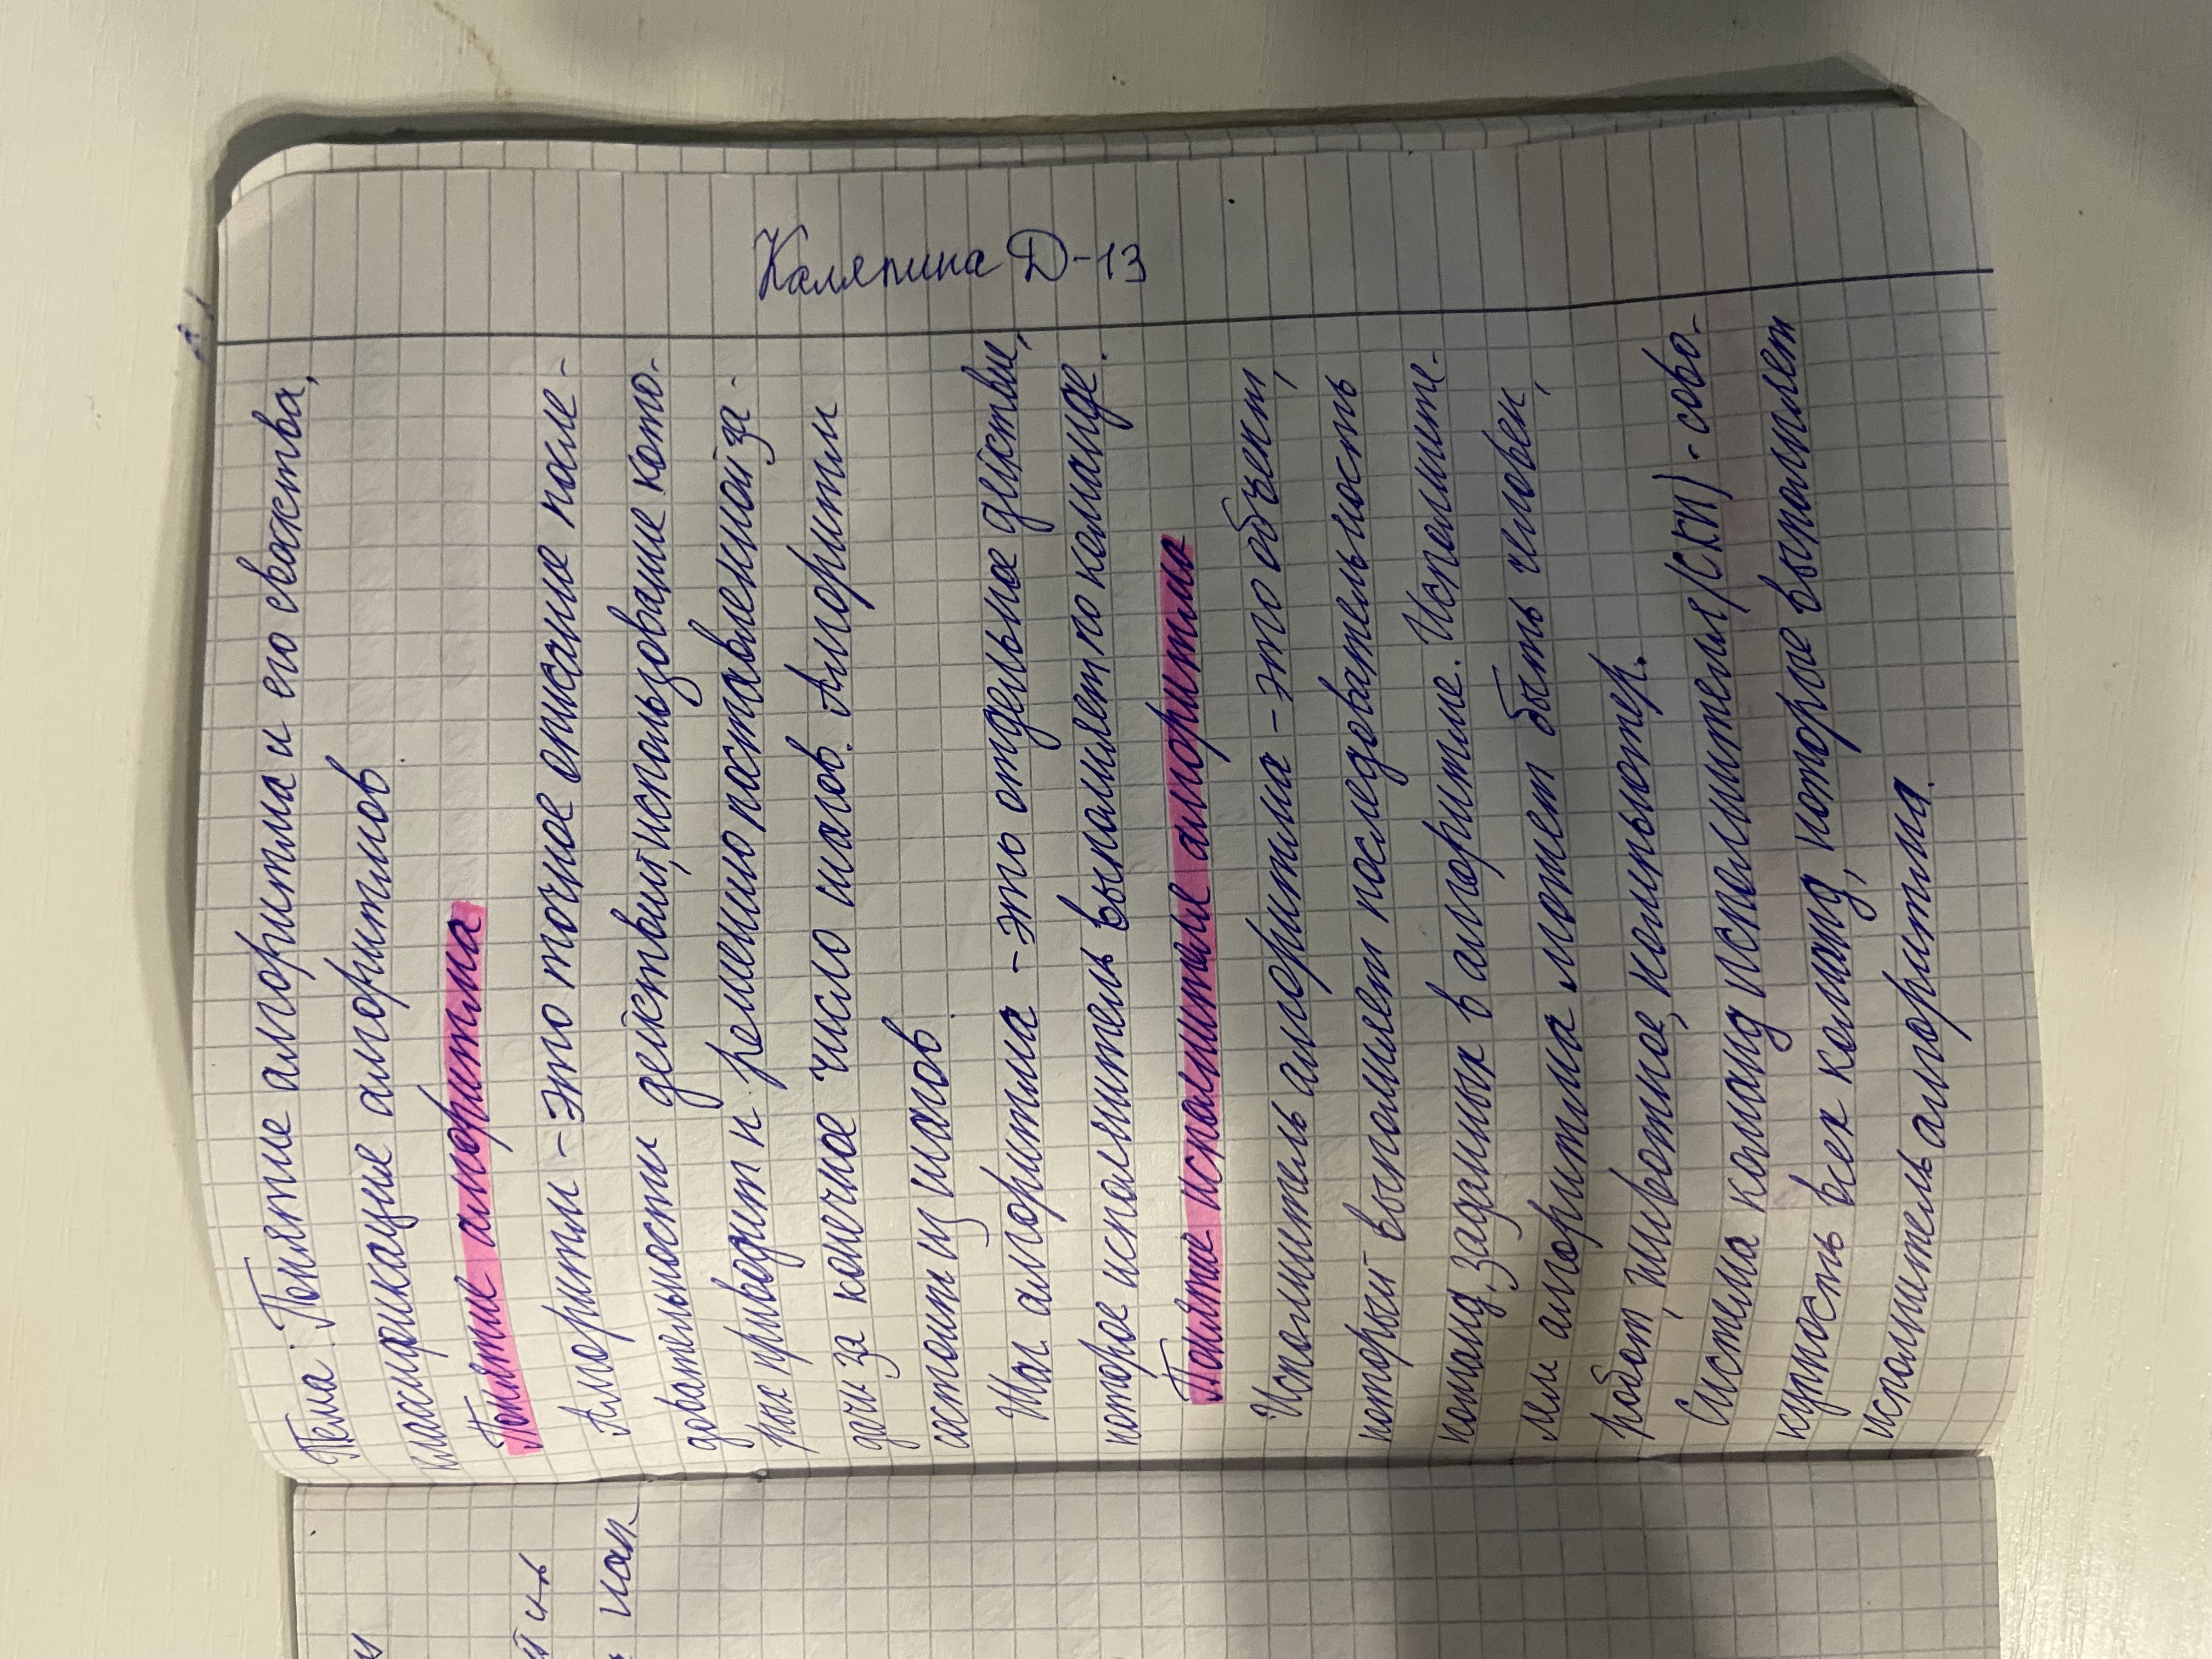 Каляпина Д-13
Тема: Понятие алгоритма и его свойства,
классификация алгоритмов.
Понятие алгоритма
Алгоритм - это точное описание после-
довательности действий, использование кото-
рых приводит к решению поставленной за-
дачи за конечное число шагов. Алгоритм
состоит из шагов.
Шаг алгоритма - это отдельное действие,
которое исполнитель выполняет по команде.
Понятие исполнителя алгоритма
Исполнитель алгоритма - это объект,
который выполняет последовательность
команд, заданных в алгоритме. Исполните-
лем алгоритма может быть человек,
робот, животное, компьютер.
Система команд исполнителя (СКИ) - сово-
купность всех команд, которые выполняет
исполнитель алгоритма.